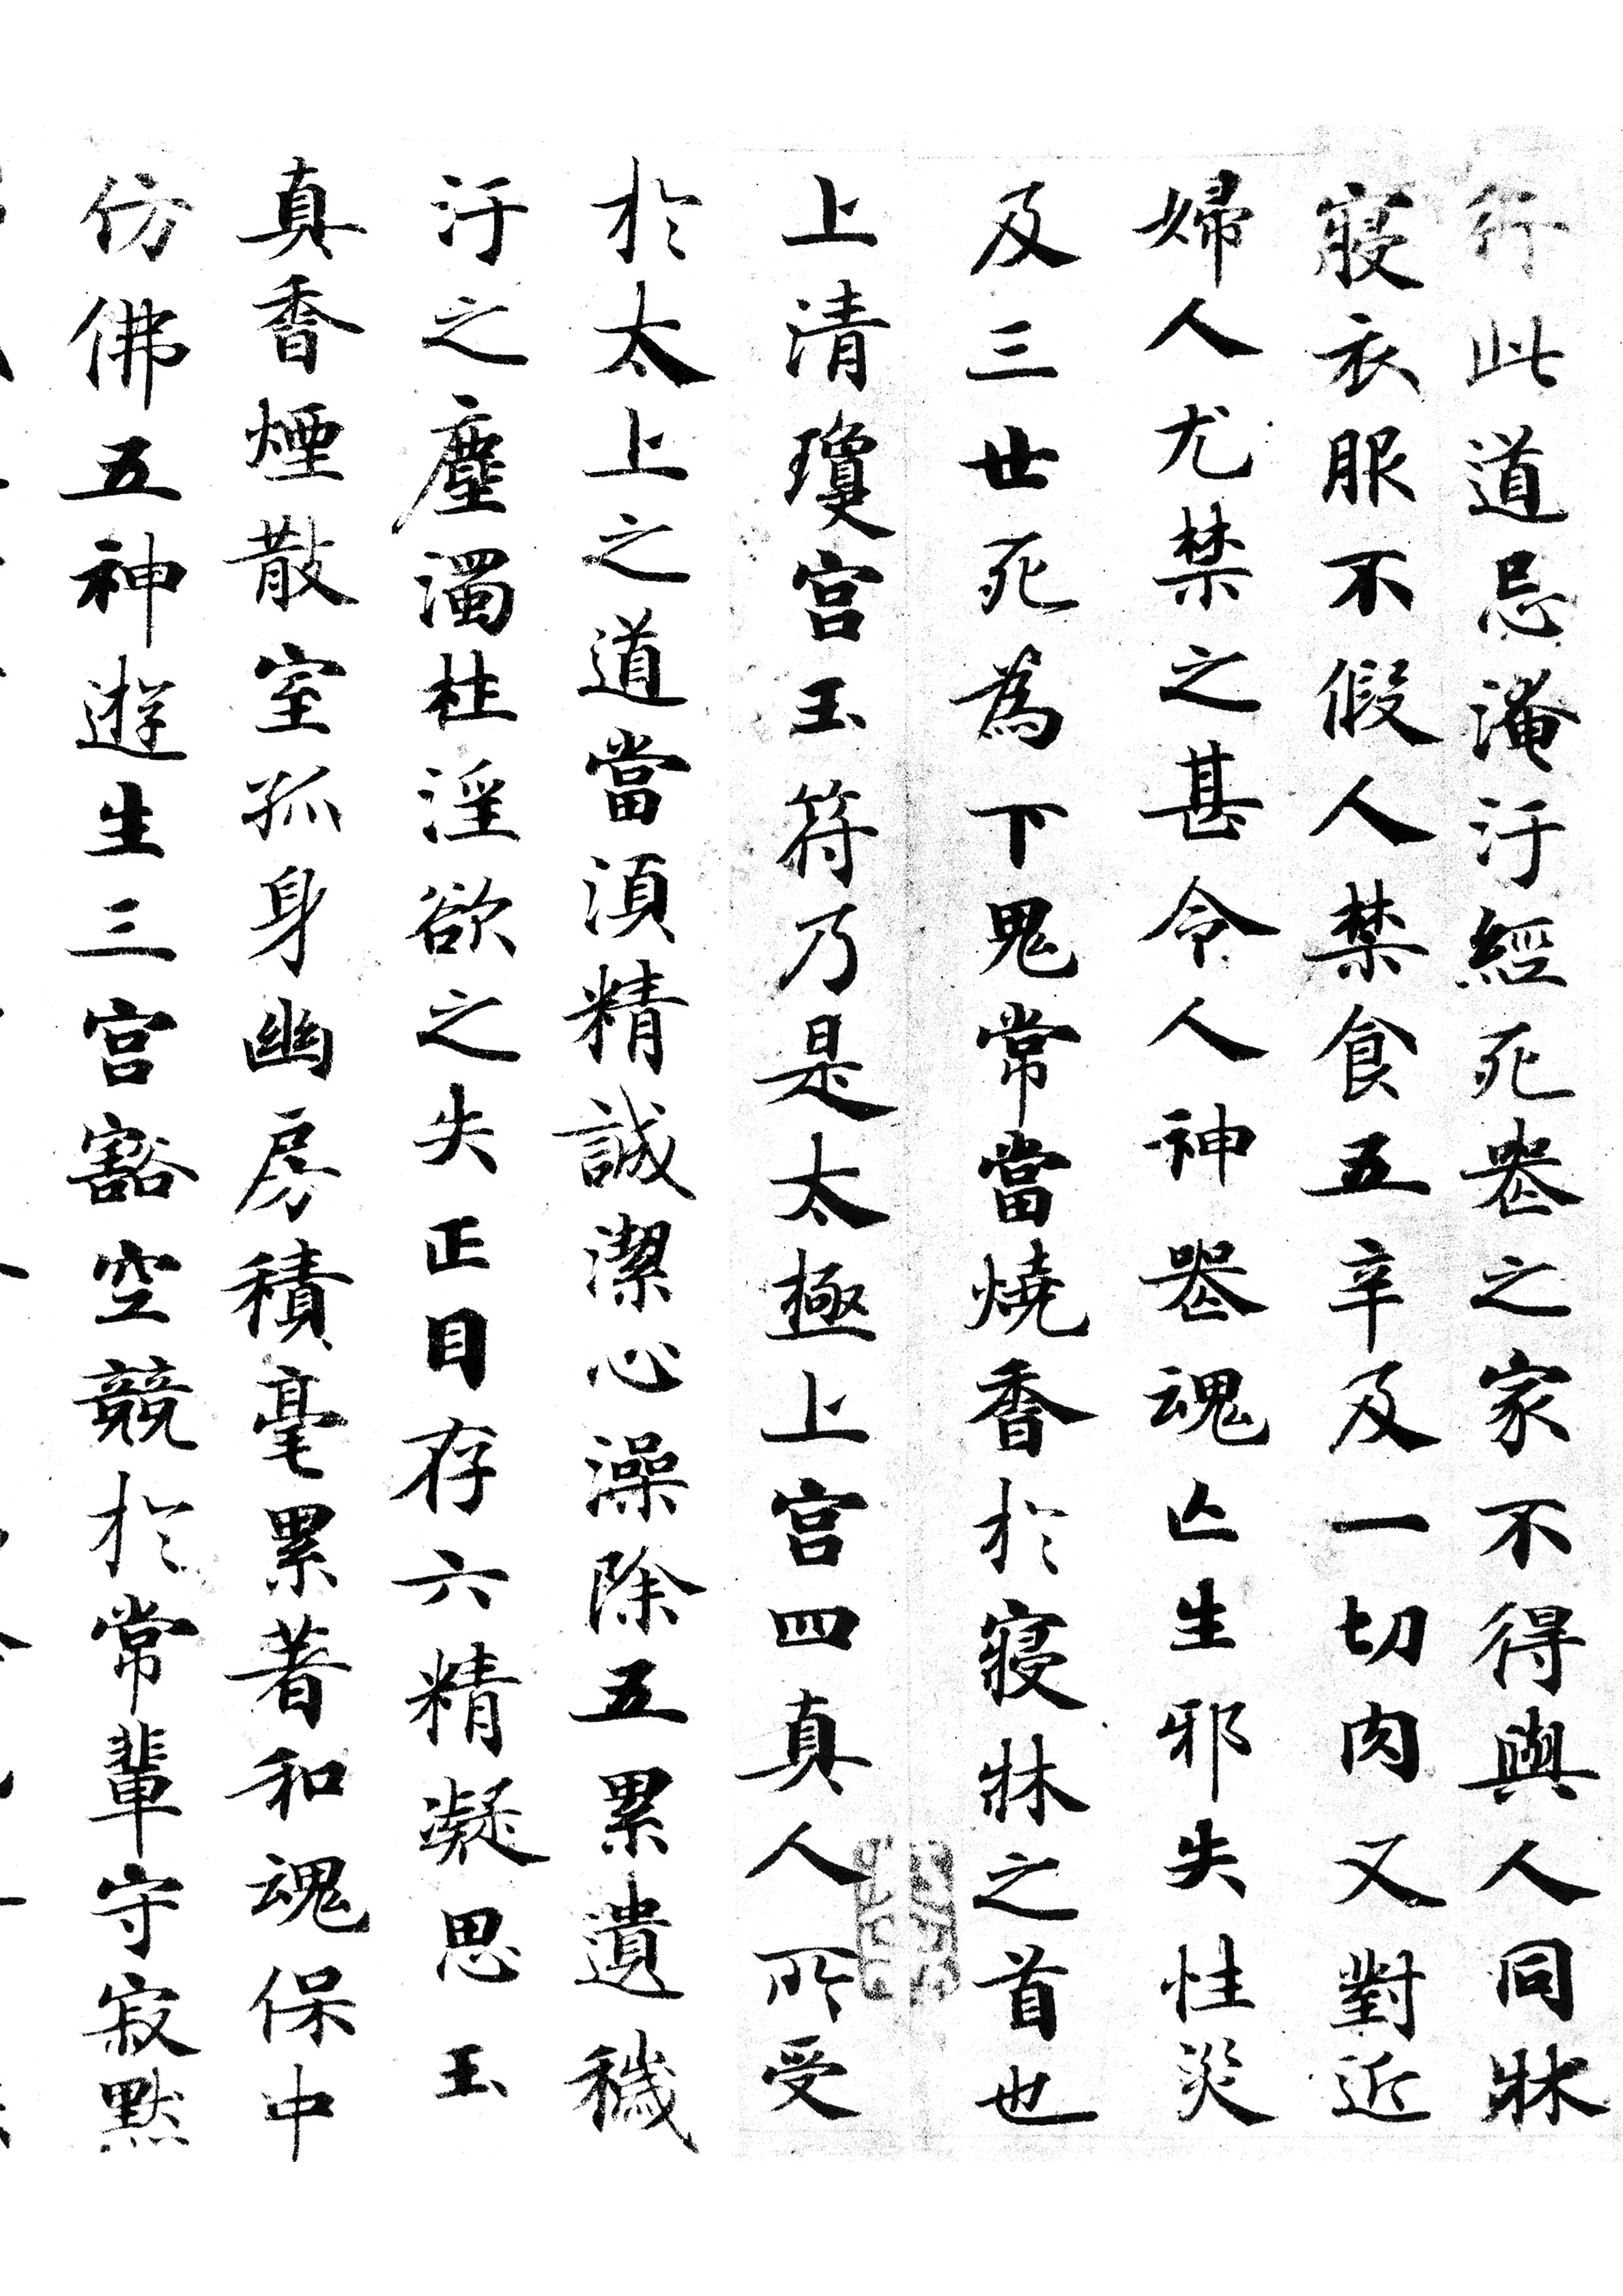 行此道忌淹汙經死喪之家不得與人同牀
寢衣服不假人禁食五辛及一切肉又對近
婦人尤禁之甚令人神喪魂亡生邪失性災
及三世死為下鬼常當燒香於寢牀之首也
上清瓊宮玉符乃是太極上宮四真人所受
於太上之道當湏精誠潔心澡除五累遺穢
汙之塵濁杜淫欲之失正目存六精凝思玉
真香煙散室孤身幽房積毫累著和魂保中
仿佛五神遊生三宮豁空競於常輩守寂默